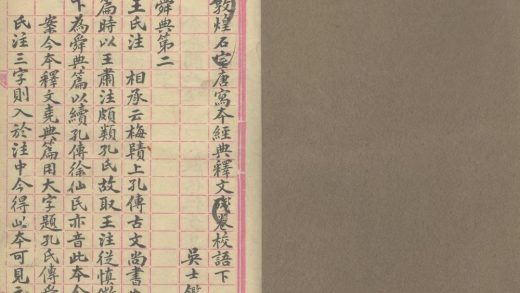 敦煌石室唐寫本經典釋文殘卷校語下
吳士鑑
舜典第二
王氏注 相承云梅賾上孔傳古文尚書
篇時以王肅注頗類孔氏故取王注從慎徽
下為舜典篇以續孔傳徐仙民亦音此本今
案今本釋文堯典篇用大字題孔氏傳
氏注三字則入於注中今得此本可見